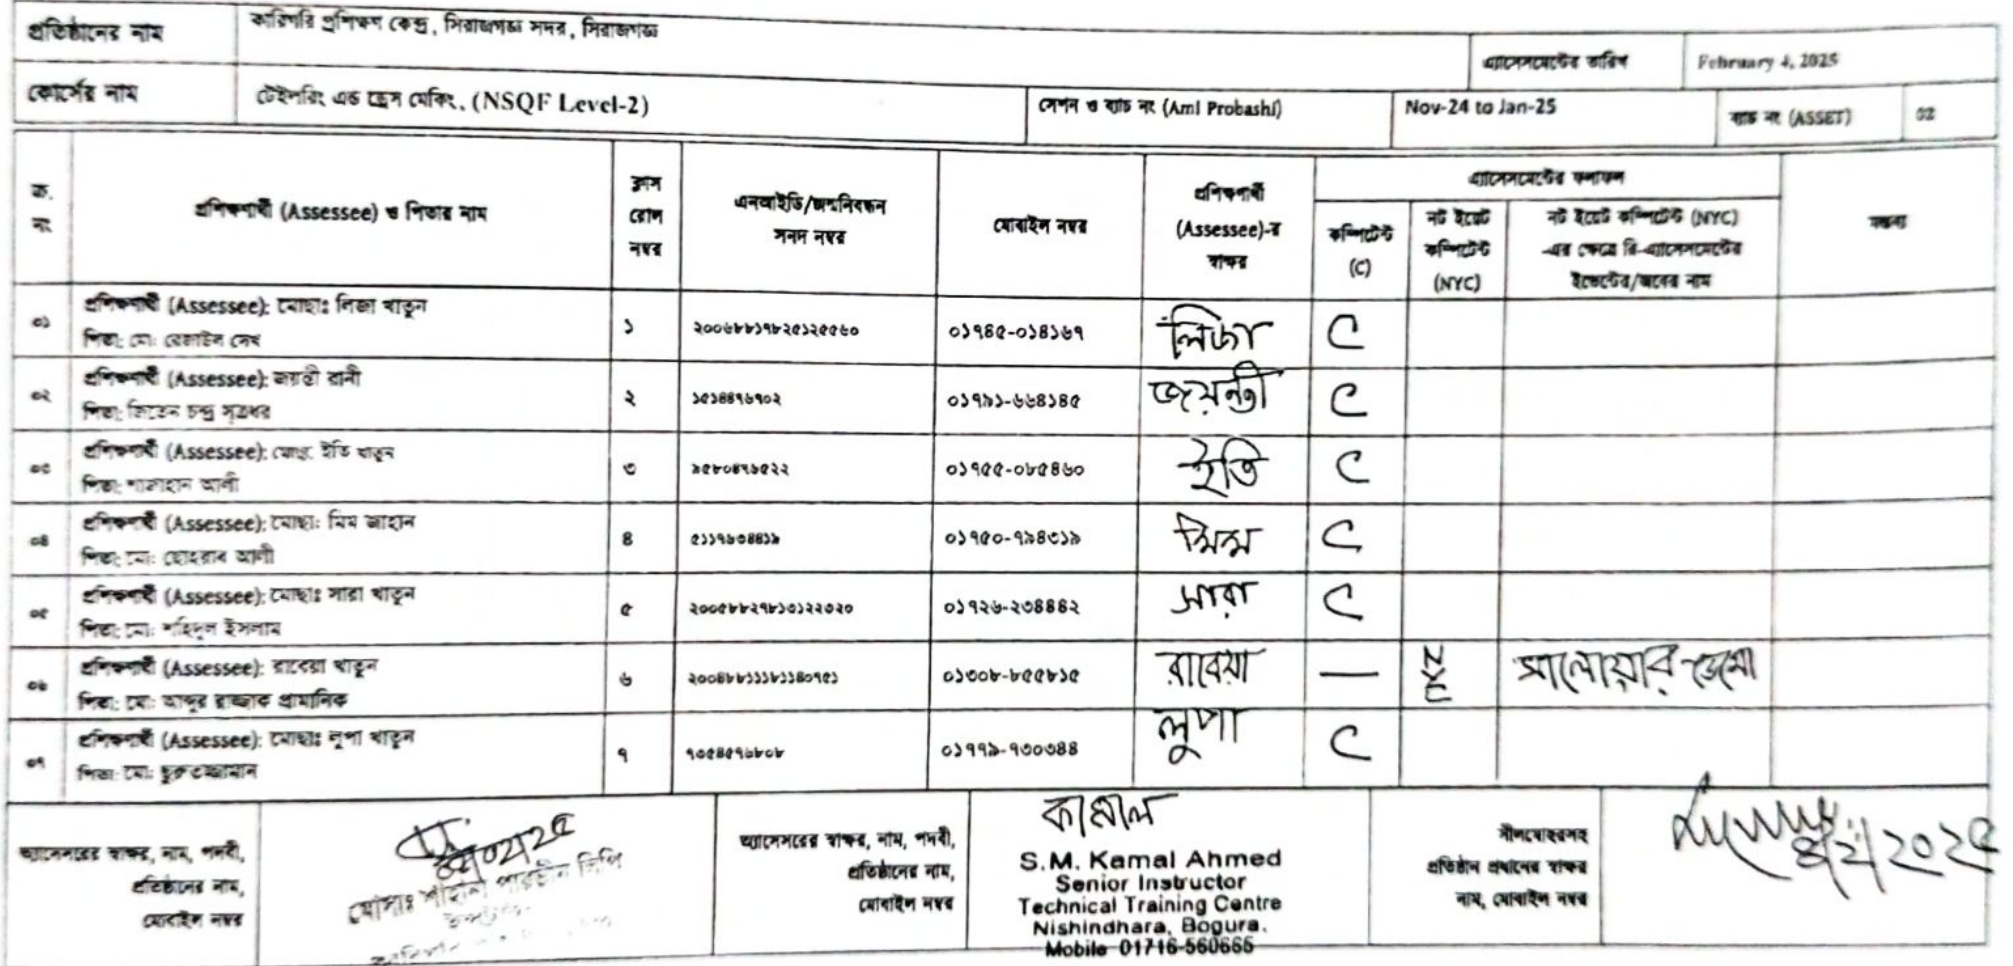 প্রতিষ্ঠানের নাম
কারিগরি প্রশিক্ষণ কেন্দ্র, সিরাজগঞ্জ সদর, সিরাজগঞ্জ
এ্যাসেসমেন্টের তারিখ
February 4, 2025
কোর্সের নাম
টেইলরিং এন্ড ড্রেস মেকিং, (NSQF Level-2)
সেশন ও ব্যাচ নং (Ami Probashi)
Nov-24 to Jan-25
ব্যাচ নং (ASSET)
02
ক্র.
নং
প্রশিক্ষণার্থী (Assessee) ও পিতার নাম
ক্লাস
রোল
নম্বর
এনআইডি/জন্মনিবন্ধন
সনদ নম্বর
মোবাইল নম্বর
প্রশিক্ষণার্থী
(Assessee)-র
স্বাক্ষর
এ্যাসেসমেন্টের ফলাফল
কম্পিটেন্ট
(C)
নট ইয়েট
কম্পিটেন্ট
(NYC)
নট ইয়েট কম্পিটেন্ট (NYC)
-এর ক্ষেত্রে রি-এ্যাসেসমেন্টের
ইভেন্টের/জবের নাম
মন্তব্য
০১
প্রশিক্ষণার্থী (Assessee): মোছাঃ লিজা খাতুন
পিতা: মো: রেজাউল সেখ
১
২০০৬৮৮১৭৮২৫১২৫৫৬০
০১৭৪৫-০১৪১৬৭
লিজা
C
০২
প্রশিক্ষণার্থী (Assessee): জয়ন্তী রানী
পিতা: জিতেন চন্দ্র সূত্রধর
২
১৫১৪৪৭৬৭০২
০১৭৯১-৬৬৪১৪৫
জয়ন্তী
C
০৩
প্রশিক্ষণার্থী (Assessee): মোছা: ইতি খাতুন
পিতা: শাজাহান আলী
৩
৯৫৮০৪৭৬৫২২
০১৭৫৫-০৮৫৪৬০
ইতি
C
০৪
প্রশিক্ষণার্থী (Assessee): মোছা: মিম জাহান
পিতা: মো: ছোহরাব আলী
৪
৫১১৭৬৩৪৪১৯
০১৭৫০-৭৯৪৩১৯
মিম
C
০৫
প্রশিক্ষণার্থী (Assessee): মোছাঃ সারা খাতুন
পিতা: মো: শহিদুল ইসলাম
৫
২০০৫৮৮২৭৮১৩১২২৩২০
০১৭২৬-২৩৪৪৪২
সারা
C
০৬
প্রশিক্ষণার্থী (Assessee): রাবেয়া খাতুন
পিতা: মো: আব্দুর রাজ্জাক প্রামানিক
৬
২০০৪৮৮১১১৮১১৪০৭৫১
০১৩০৮-৮৫৫৮১৫
রাবেয়া
—
NYC
সালোয়ার
০৭
প্রশিক্ষণার্থী (Assessee): মোছাঃ লুপা খাতুন
পিতা: মো:
৭
৭৩৫৪৫৭৬৮০৮
০১৭৭৯-৭৩০৩৪৪
লুপা
C
অ্যাসেসরের স্বাক্ষর, নাম, পদবী,
প্রতিষ্ঠানের নাম,
মোবাইল নম্বর
মোসাঃ পারভীন লিপি
অ্যাসেসরের স্বাক্ষর, নাম, পদবী,
প্রতিষ্ঠানের নাম,
মোবাইল নম্বর
কামাল
S.M. Kamal Ahmed
Senior Instructor
Technical Training Centre
Nishindhara, Bogura.
Mobile 01716-560665
সীলমোহরসহ
প্রতিষ্ঠান প্রধানের স্বাক্ষর
নাম, মোবাইল নম্বর